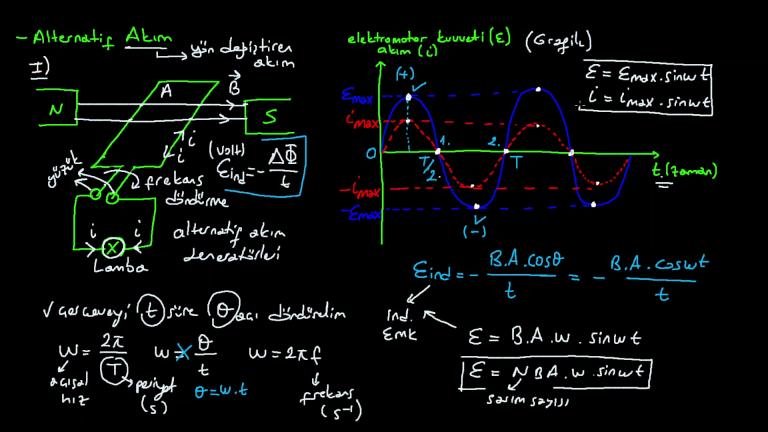 - Alternatif Akım
yön değiştiren
akım
I)
A
B
N
S
i
i
yüzük
frekans
döndürme
(volt)
εind = - ΔΦ/t
i
i
X
Lamba
alternatif akım
deneratörleri
elektromotor kuvveti (ε)
akım (i)
(Grafik)
ε = εmax. sinwt
i = imax. sinwt
(+)
εmax
imax
0
-imax
-εmax
T/2
1.
2.
2.
T
t (zaman)
(-)
εind = - B.A.cosθ/t = - B.A.coswt/t
ind.
Emk
ε = B.A.w. sinwt
ε = NBA.w. sinwt
sarım sayısı
√ çerçeveyi t süre θ açı döndürelim
w = 2π/T
w = θ/t
w = 2πf
açısal
hız
periyot
(s)
θ = w.t
frekans
(s⁻¹)